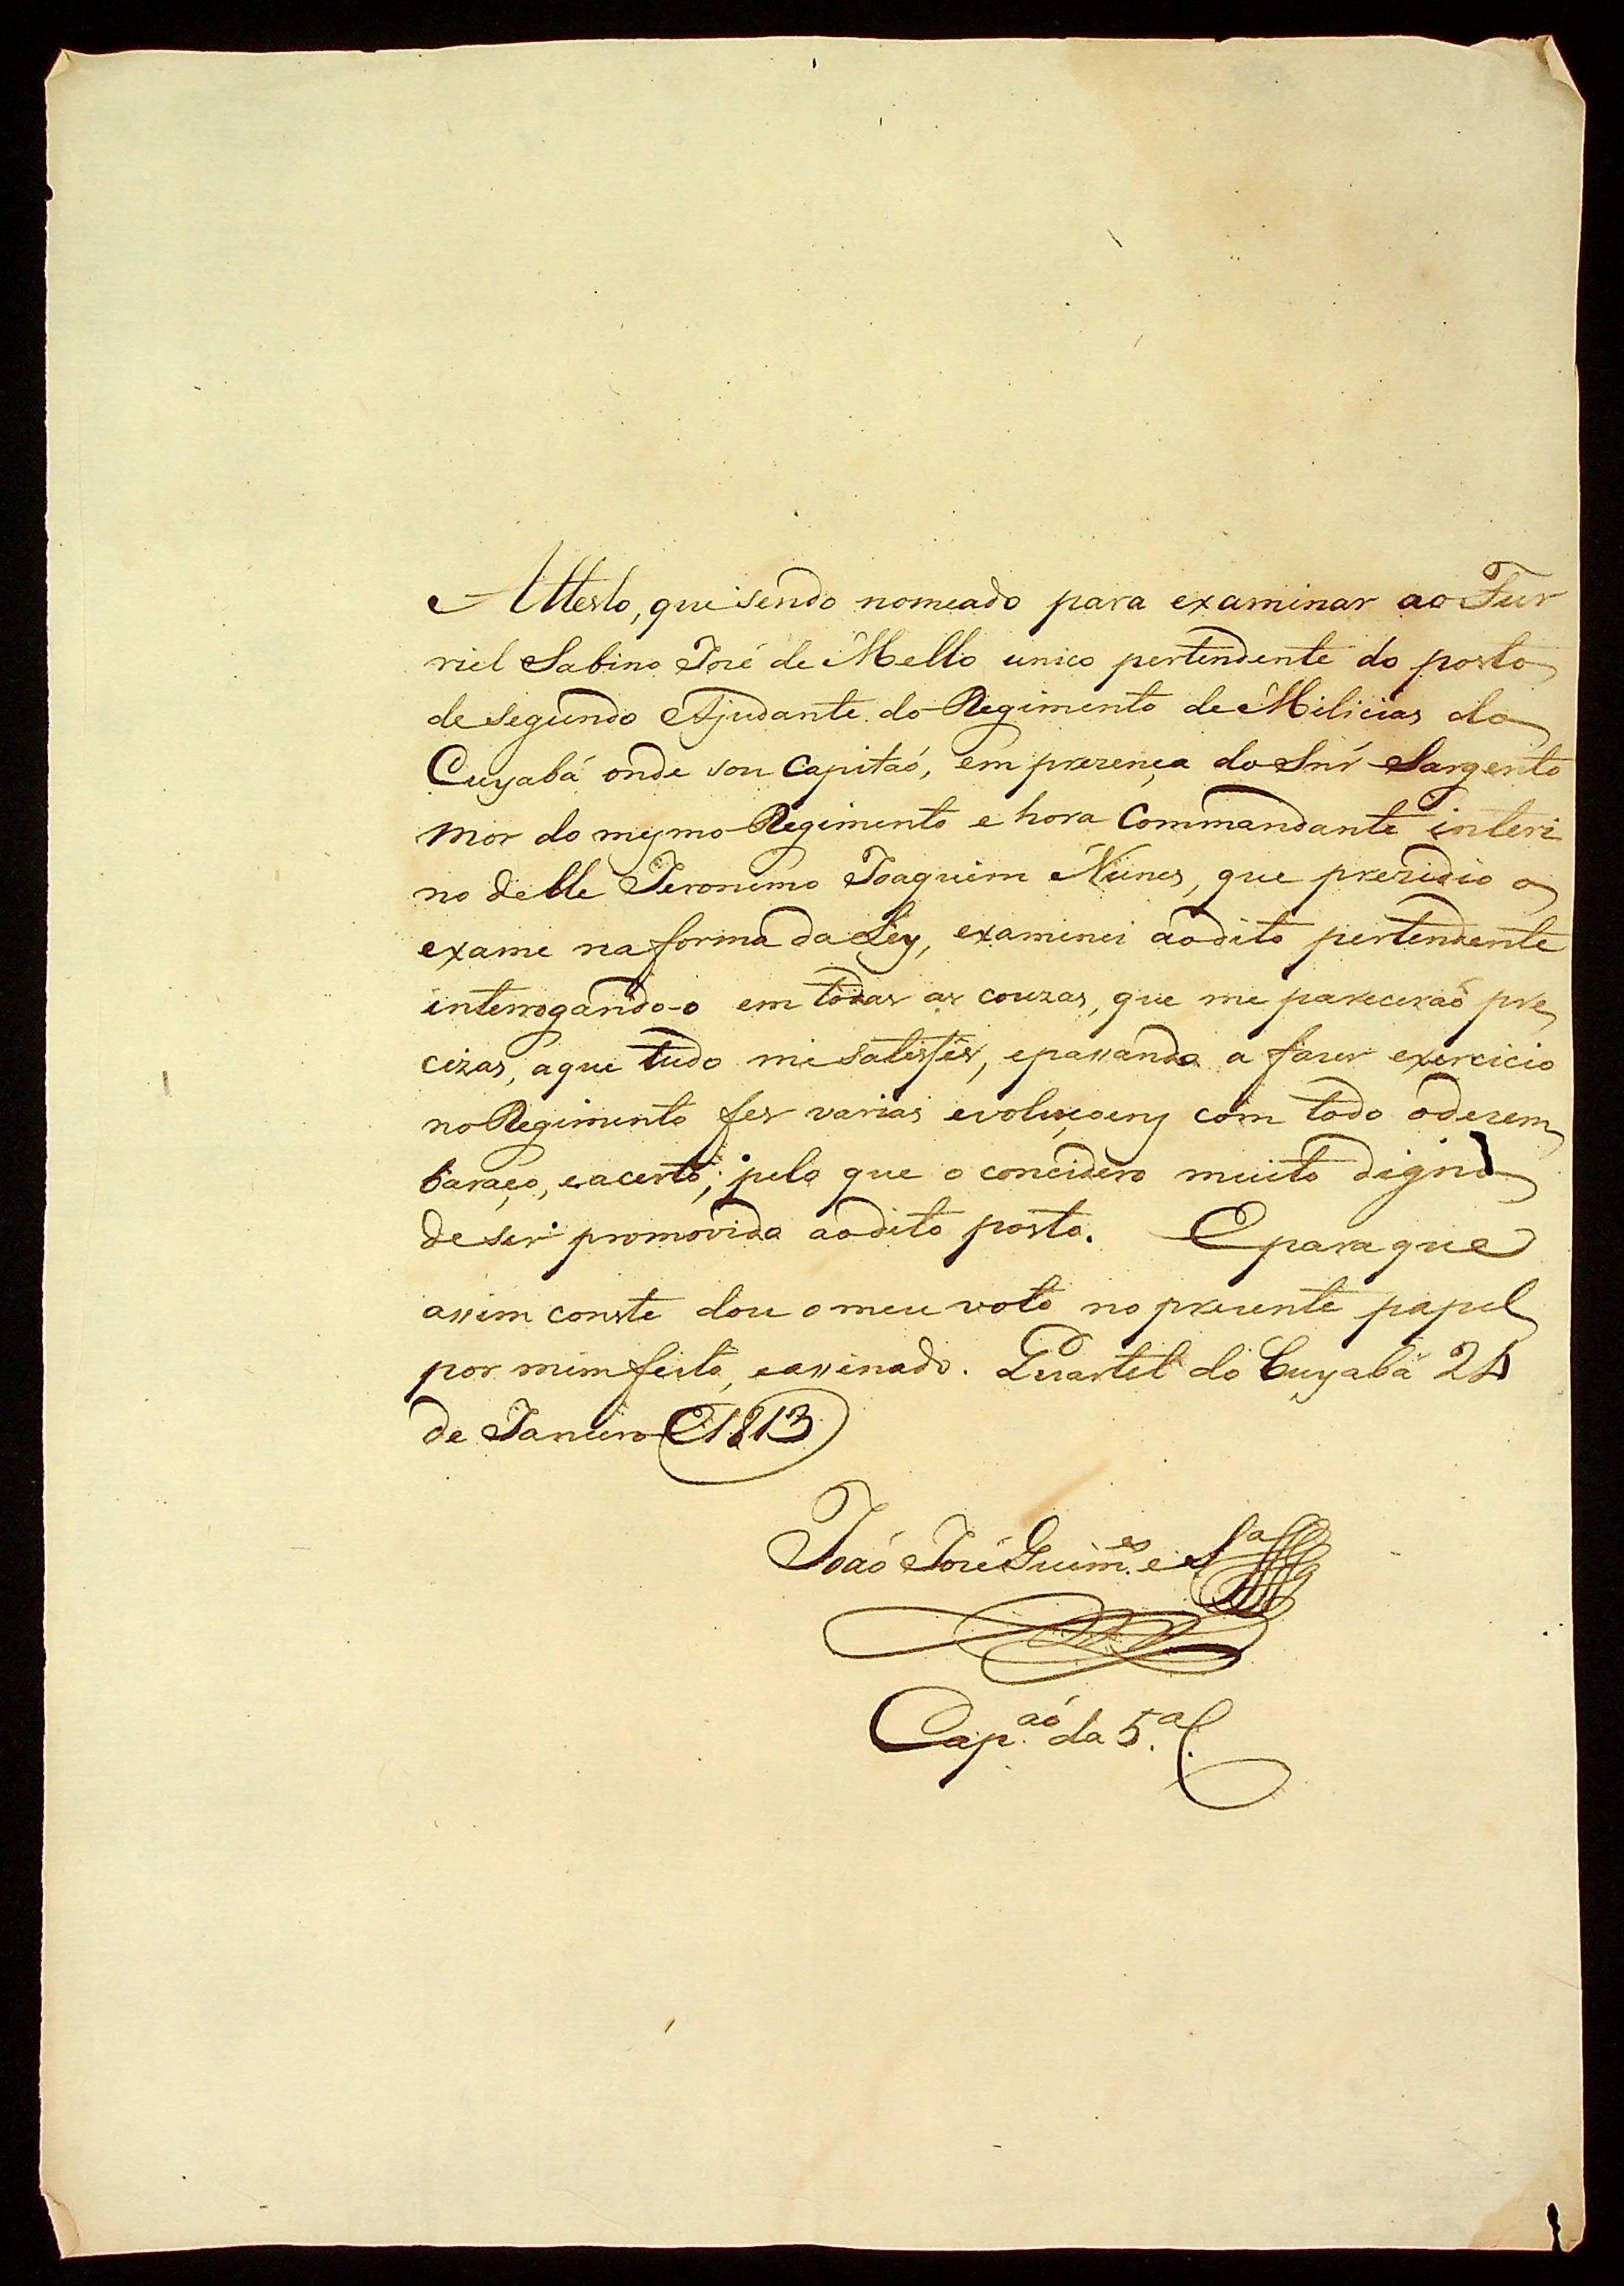 Attesto, que sendo nomeado para examinar ao Fur
riel Sabino José de Mello unico pertendente do posto
de segundo Ajudante do Regimento de Milicias do
Cuyabá onde sou Capitaó, em prezença do Snr̃ Sargento
mor do mesmo Regimento e hora Commandante interi
no delle Jeronimo Joaquim Nunes, que prezidio o
exame na forma da Ley, examinei ao dito pertendente
interrogando-o em todas as couzas, que me pareceraõ pre
cizas, a que tudo me satisfes, e passando a fazer exercicio
no Regimento fes varias evoluçoens com todo o dezem
baraço, e acerto; pelo que o concidero muito digno
de ser promovido ao dito posto. E para que
assim conste dou o meu voto no prezente papel
por mim feito, e assinado. Quartel do Cuyabá 24
de Janeiro de 1813
João José Guim.es e S.a
Cap.aó da 5.a C.